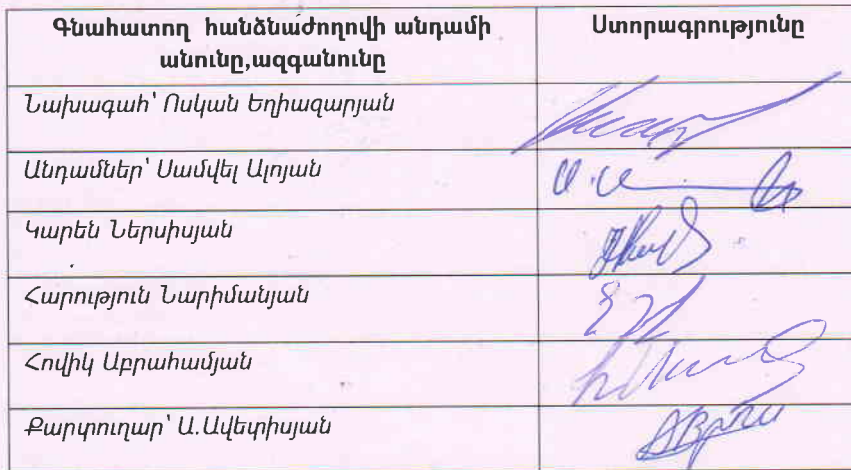 Գնահատող հանձնաժողովի անդամի Ստորագրությունը
անունը,ազգանունը
Նախագահ՝ Ոսկան Եղիազարյան
Անդամներ՝ Սամվել Ալոյան
Կարեն Ներսիսյան
Հարություն Նարիմանյան
Հովիկ Աբրահամյան
Քարտուղար՝ Ա.Ավետիսյան